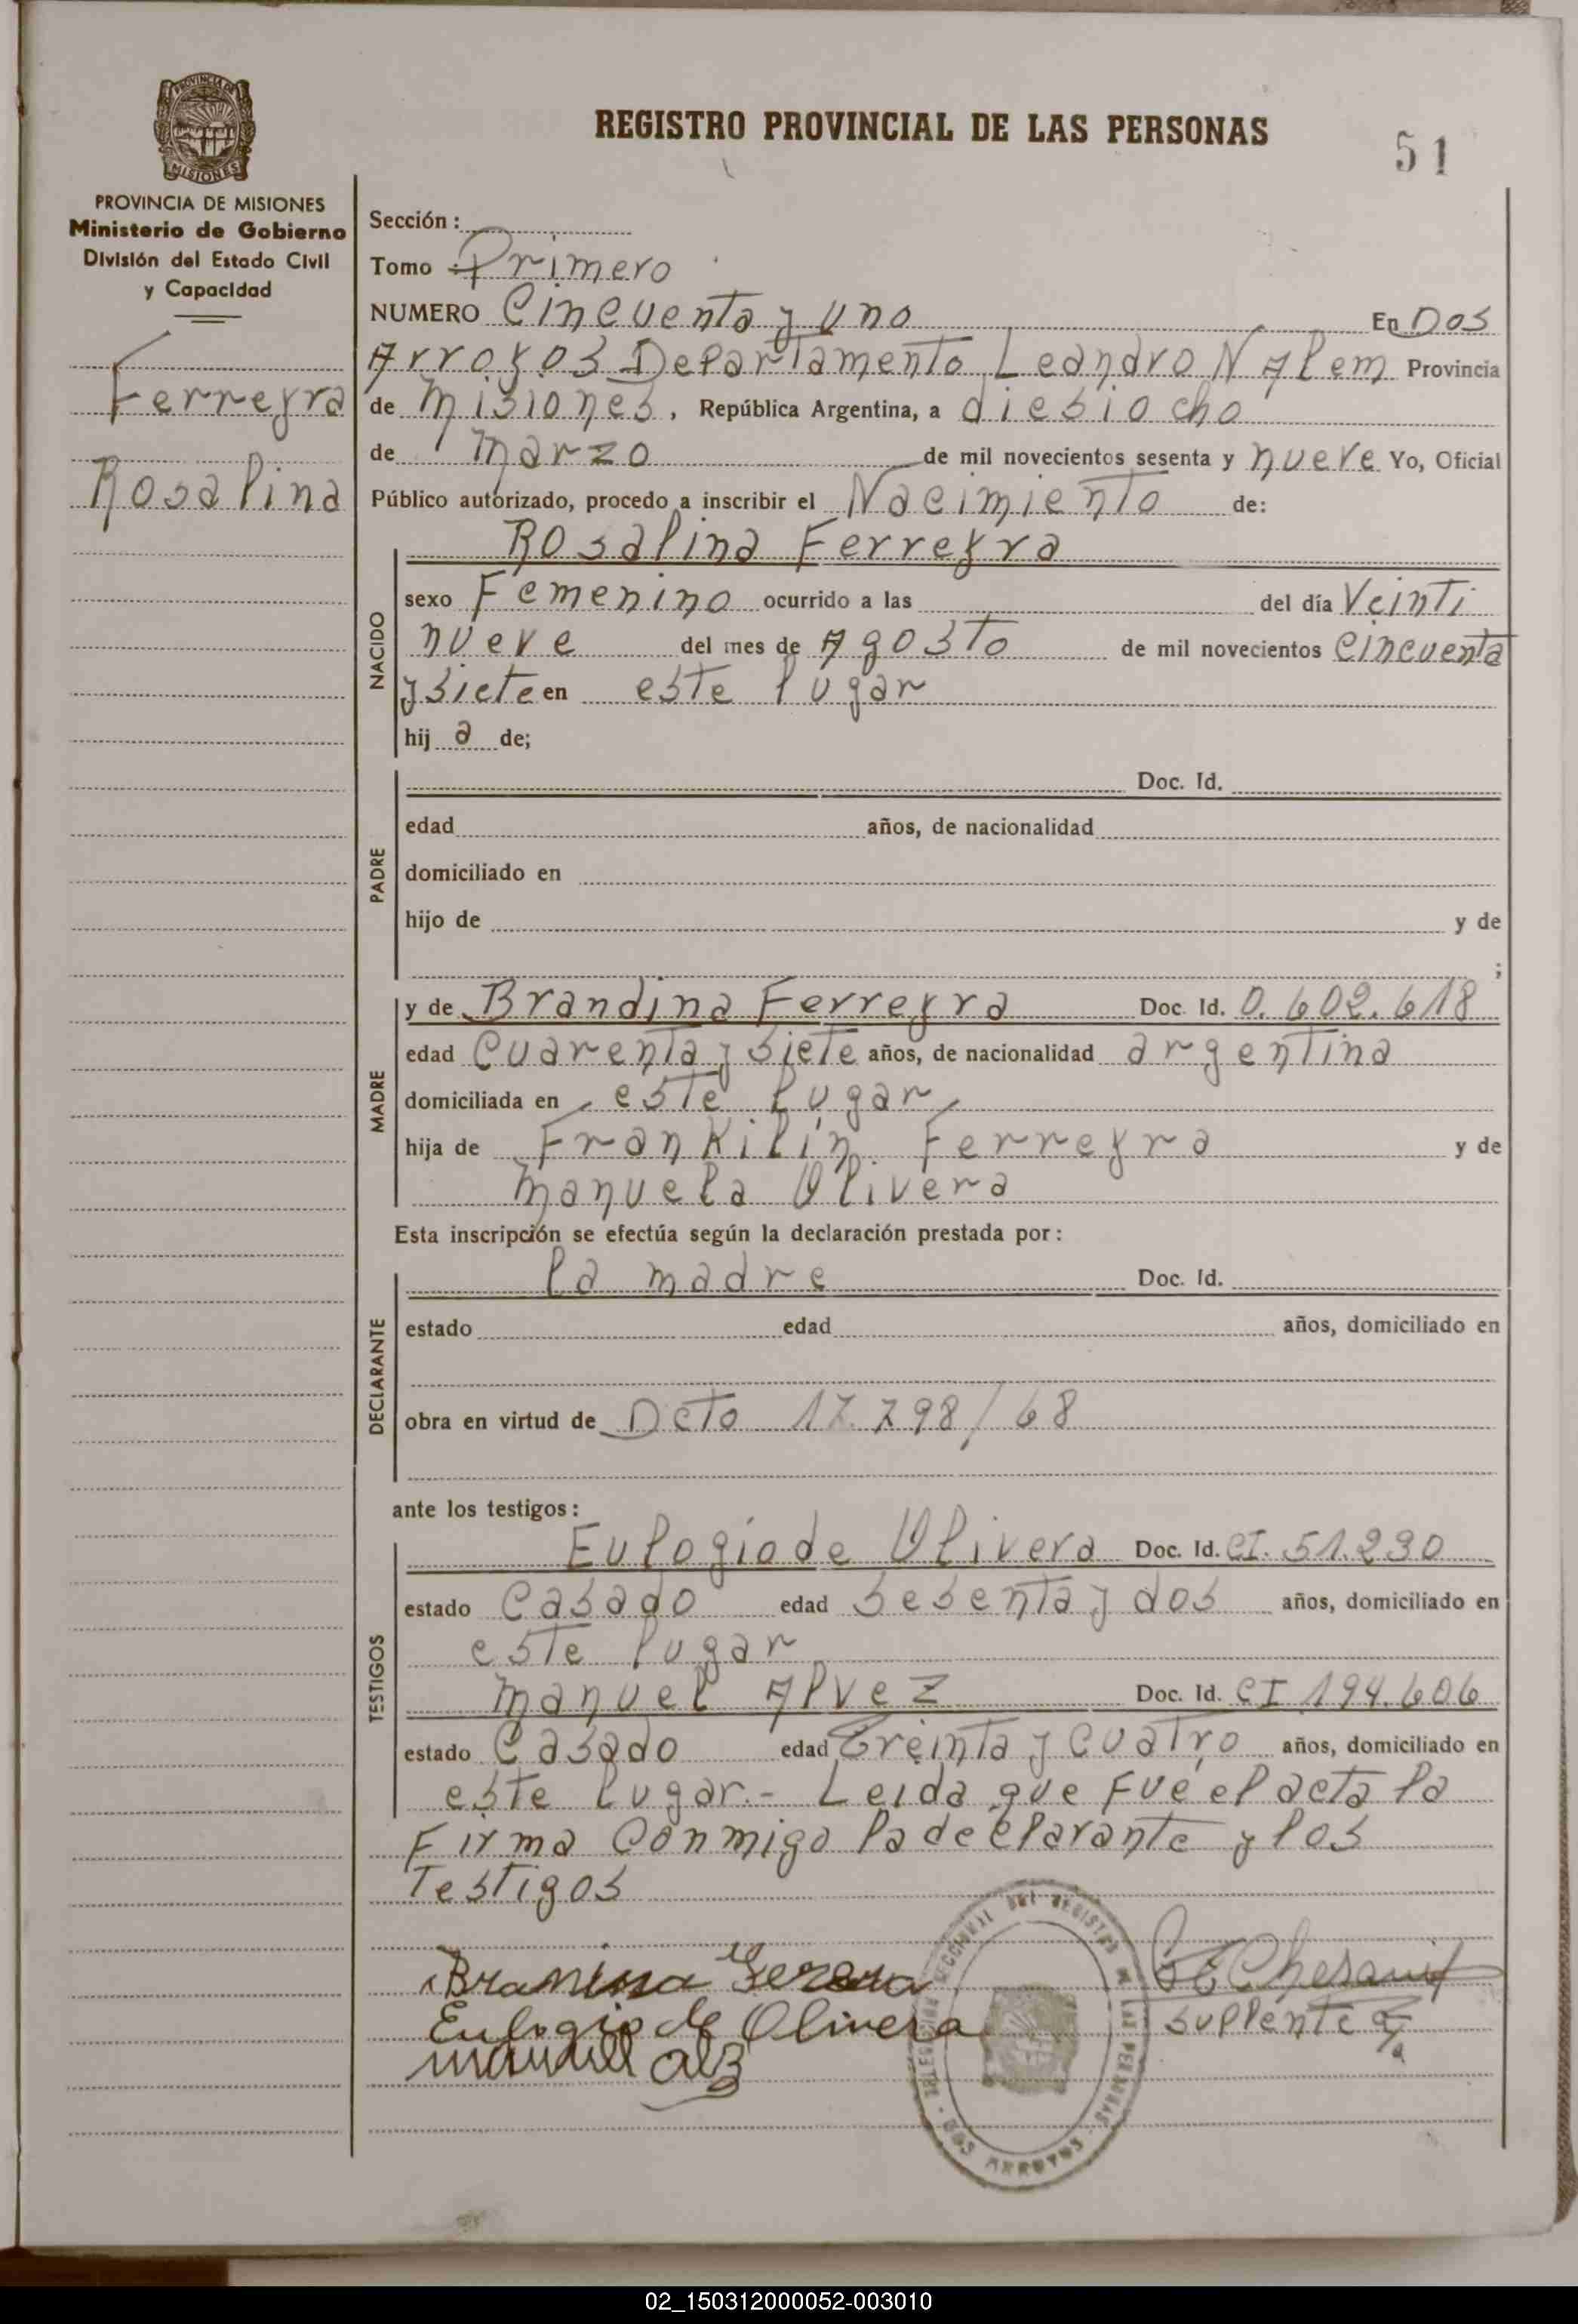 PROVINCIA DE MISIONES
MISIONES
REGISTRO PROVINCIAL DE LAS PERSONAS
51
PROVINCIA DE MISIONES
Ministerio de Gobierno
División del Estado Civil
y Capacidad
Ferreyra
Rosalina
Sección:
Tomo Primero
NUMERO Cincuenta y uno En Dos
Arroyos Departamento Leandro N Alem Provincia
de Misiones, República Argentina, a diesiocho
de Marzo de mil novecientos sesenta y nueve Yo, Oficial
Público autorizado, procedo a inscribir el Nacimiento de:
Rosalina Ferreyra
NACIDO
sexo Femenino ocurrido a las del día Veinti
nueve del mes de Agosto de mil novecientos Cincuenta
y siete en este lugar
hij a de;
PADRE
Doc. Id.
edad años, de nacionalidad
domiciliado en
hijo de y de
;
MADRE
y de Brandina Ferreyra Doc. Id. 0.602.618
edad Cuarenta y siete años, de nacionalidad argentina
domiciliada en este lugar
hija de Frankilin Ferreyra y de
Manuela Olivera
Esta inscripción se efectúa según la declaración prestada por:
DECLARANTE
la madre Doc. Id.
estado edad años, domiciliado en
obra en virtud de Dcto 17.798/68
ante los testigos:
TESTIGOS
Eulogio de Olivera Doc. Id. CI. 51.230
estado Casado edad sesenta y dos años, domiciliado en
este lugar
Manuel Alvez Doc. Id. CI 194.606
estado Casado edad Treinta y cuatro años, domiciliado en
este lugar.- Leida que fué el acta la
Firma Conmigo la declarante y los
Testigos
Eulogio de Olivera
suplente
DOS ARROYOS
02_150312000052-003010